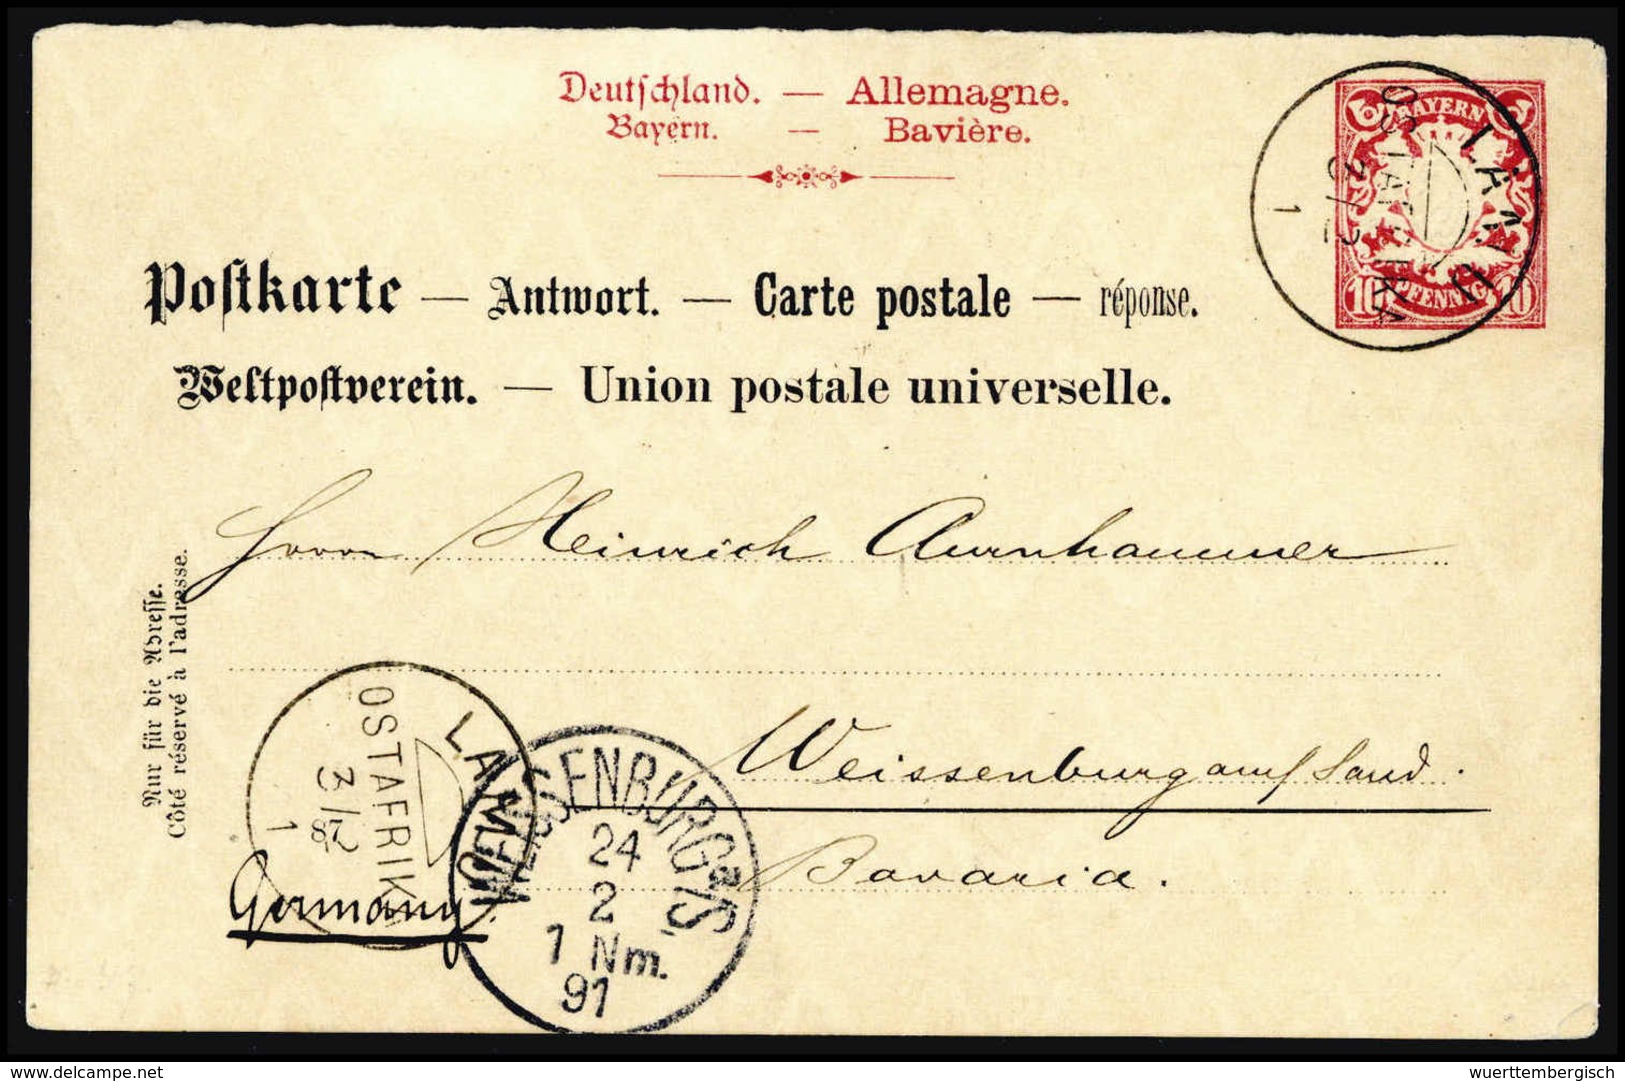 Deutschland. — Allemagne.
Bayern. — Bavière.
BAYERN
10 PFENNIG 10
LAMU
OSTAFRIKA
3/2
1
Postkarte — Antwort. — Carte postale — réponse.
Weltpostverein. — Union postale universelle.
Herrn Heinrich Aurnhammer
Nur für die Adresse.
Côté réservé à l'adresse.
Weissenburg auf Sand.
Bavaria.
LAMU
OSTAFRIKA
3/2
1
Germany.
WEISSENBURG a/S
24
2
1 Nm.
91
delcampe.net
wuerttembergisch